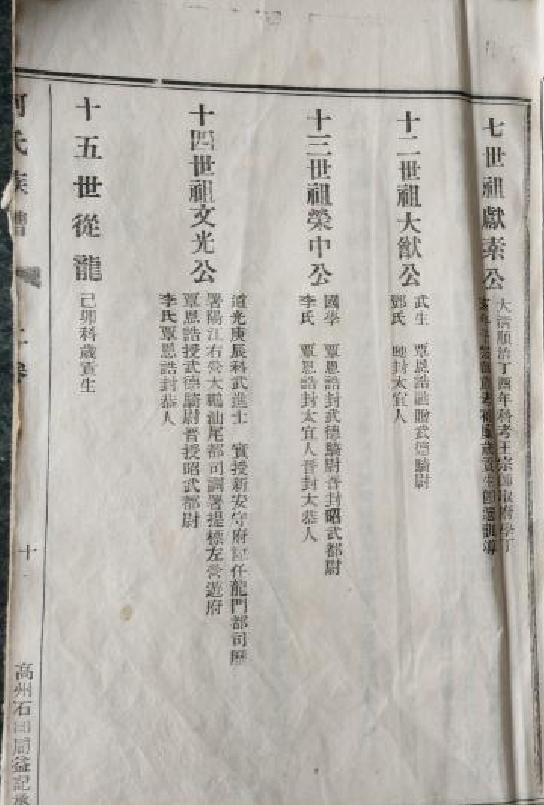 七世祖獻素公
大清順治丁酉年科考王宗師取府學丁
十二世祖大猷公
武生 覃恩誥贈武德騎尉
鄧氏 馳封太宜人
十三世祖榮中公
國學 覃恩誥封武德騎尉晋封昭武都尉
李氏 覃恩誥封太宜人晋封太恭人
十四世祖文光公
道光庚辰科武進士 實授新安守府陞任龍門都司歷
署陽江右營大鵬汕尾都司調署提標左營遊府
覃恩誥授武德騎尉晋授昭武都尉
李氏覃恩誥封恭人
十五世從龍
己卯科歲貢生
何氏族譜
十
高州石印局益記承